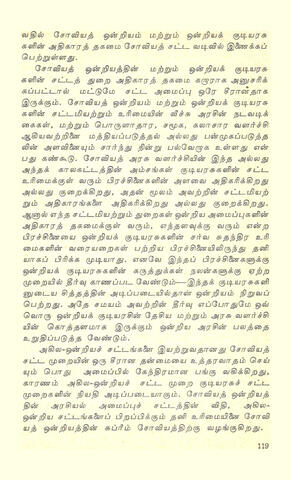 வதில் சோவியத் ஒன்றியம் மற்றும் ஒன்றியக் குடியரசு
களின் அதிகாரத் தகமை சோவியத் சட்ட வடிவில் இணைக்கப்
பெற்றுள்ளது.
சோவியத் ஒன்றியத்தின் மற்றும் ஒன்றியக் குடியரசு
களின் சட்டத் துறை அதிகாரத் தகமை கழுராக அனுசரிக்
கப்பட்டால் மட்டுமே சட்ட அமைப்பு ஒரே சீரானதாக
இருக்கும். சோவியத் ஒன்றியம் மற்றும் ஒன்றியக் குடியரசு
களின் சட்டமியற்றும் உரிமையின் வீச்சு அரசின் நடவடிக்
கைகள், மற்றும் பொருளாதார, சமூக, கலாசார வளர்ச்சி
ஆகியவற்றினை மத்தியப்படுத்தல் அல்லது பன்முகப்படுத்த
லின் அளவினையும் சார்ந்து நின்று பல்வேறாக உள்ளது என்
பது கண்கூடு. சோவியத் அரசு வளர்ச்சியின் இந்த அல்லது
அந்தக் காலகட்டத்தின் அம்சங்கள் குடியரசுகளின் சட்ட
உரிமைக்குள் வரும் பிரச்சினைகளின் அளவை அதிகரிக்கிறது
அல்லது குறைக்கிறது, அதன் மூலம் அவற்றின் சட்டமியற்
றும் அதிகாரங்களை அதிகரிக்கிறது அல்லது குறைக்கிறது.
ஆனால் எந்த சட்டமியற்றும் துறைகள் ஒன்றிய அமைப்புகளின்
அதிகாரத் தகமைக்குள் வரும், எந்தளவுக்கு வரும் என்ற
பிரச்சினையை ஒன்றியக் குடியரசுகளின் சர்வ சுதந்திர உரி
மைகளின் வரையறைகள் பற்றிய பிரச்சினையிலிருந்து தனி
யாகப் பிரிக்க முடியாது. எனவே இந்தப் பிரச்சினைகளுக்கு
ஒன்றியக் குடியரசுகளின் கருத்துக்கள் நலன்களுக்கு ஏற்ற
முறையில் தீர்வு காணப்பட வேண்டும்—இந்தக் குடியரசுகளி
னுடைய சித்தத்தின் அடிப்படையில்தான் ஒன்றியம் நிறுவப்
பெற்றது. அதே சமயம் அவற்றின் தீர்வு எப்போதுமே ஒவ்
வொரு ஒன்றியக் குடியரசின் தேசிய மற்றும் அரசு வளர்ச்சி
யின் கொத்தளமாக இருக்கும் ஒன்றிய அரசின் பலத்தை
உறுதிப்படுத்த வேண்டும்.
அகில-ஒன்றியச் சட்டங்களை இயற்றுவதானது சோவியத்
சட்ட முறையின் ஒரு சீரான தன்மையை உத்தரவாதம் செய்
யும் பொது அமைப்பில் கேந்திரமான பங்கு வகிக்கிறது,
காரணம் அகில-ஒன்றியச் சட்ட முறை குடியரசுச் சட்ட
முறைகளின் நியதி அடிப்படையாகும். சோவியத் ஒன்றியத்
தின் அரசியல் அமைப்புச் சட்டத்தின் விதி, அகில-
ஒன்றிய சட்டங்களைப் பிறப்பிக்கும் தனி உரிமையினை சோவி
யத் ஒன்றியத்தின் சுப்ரீம் சோவியத்திற்கு வழங்குகிறது.
119